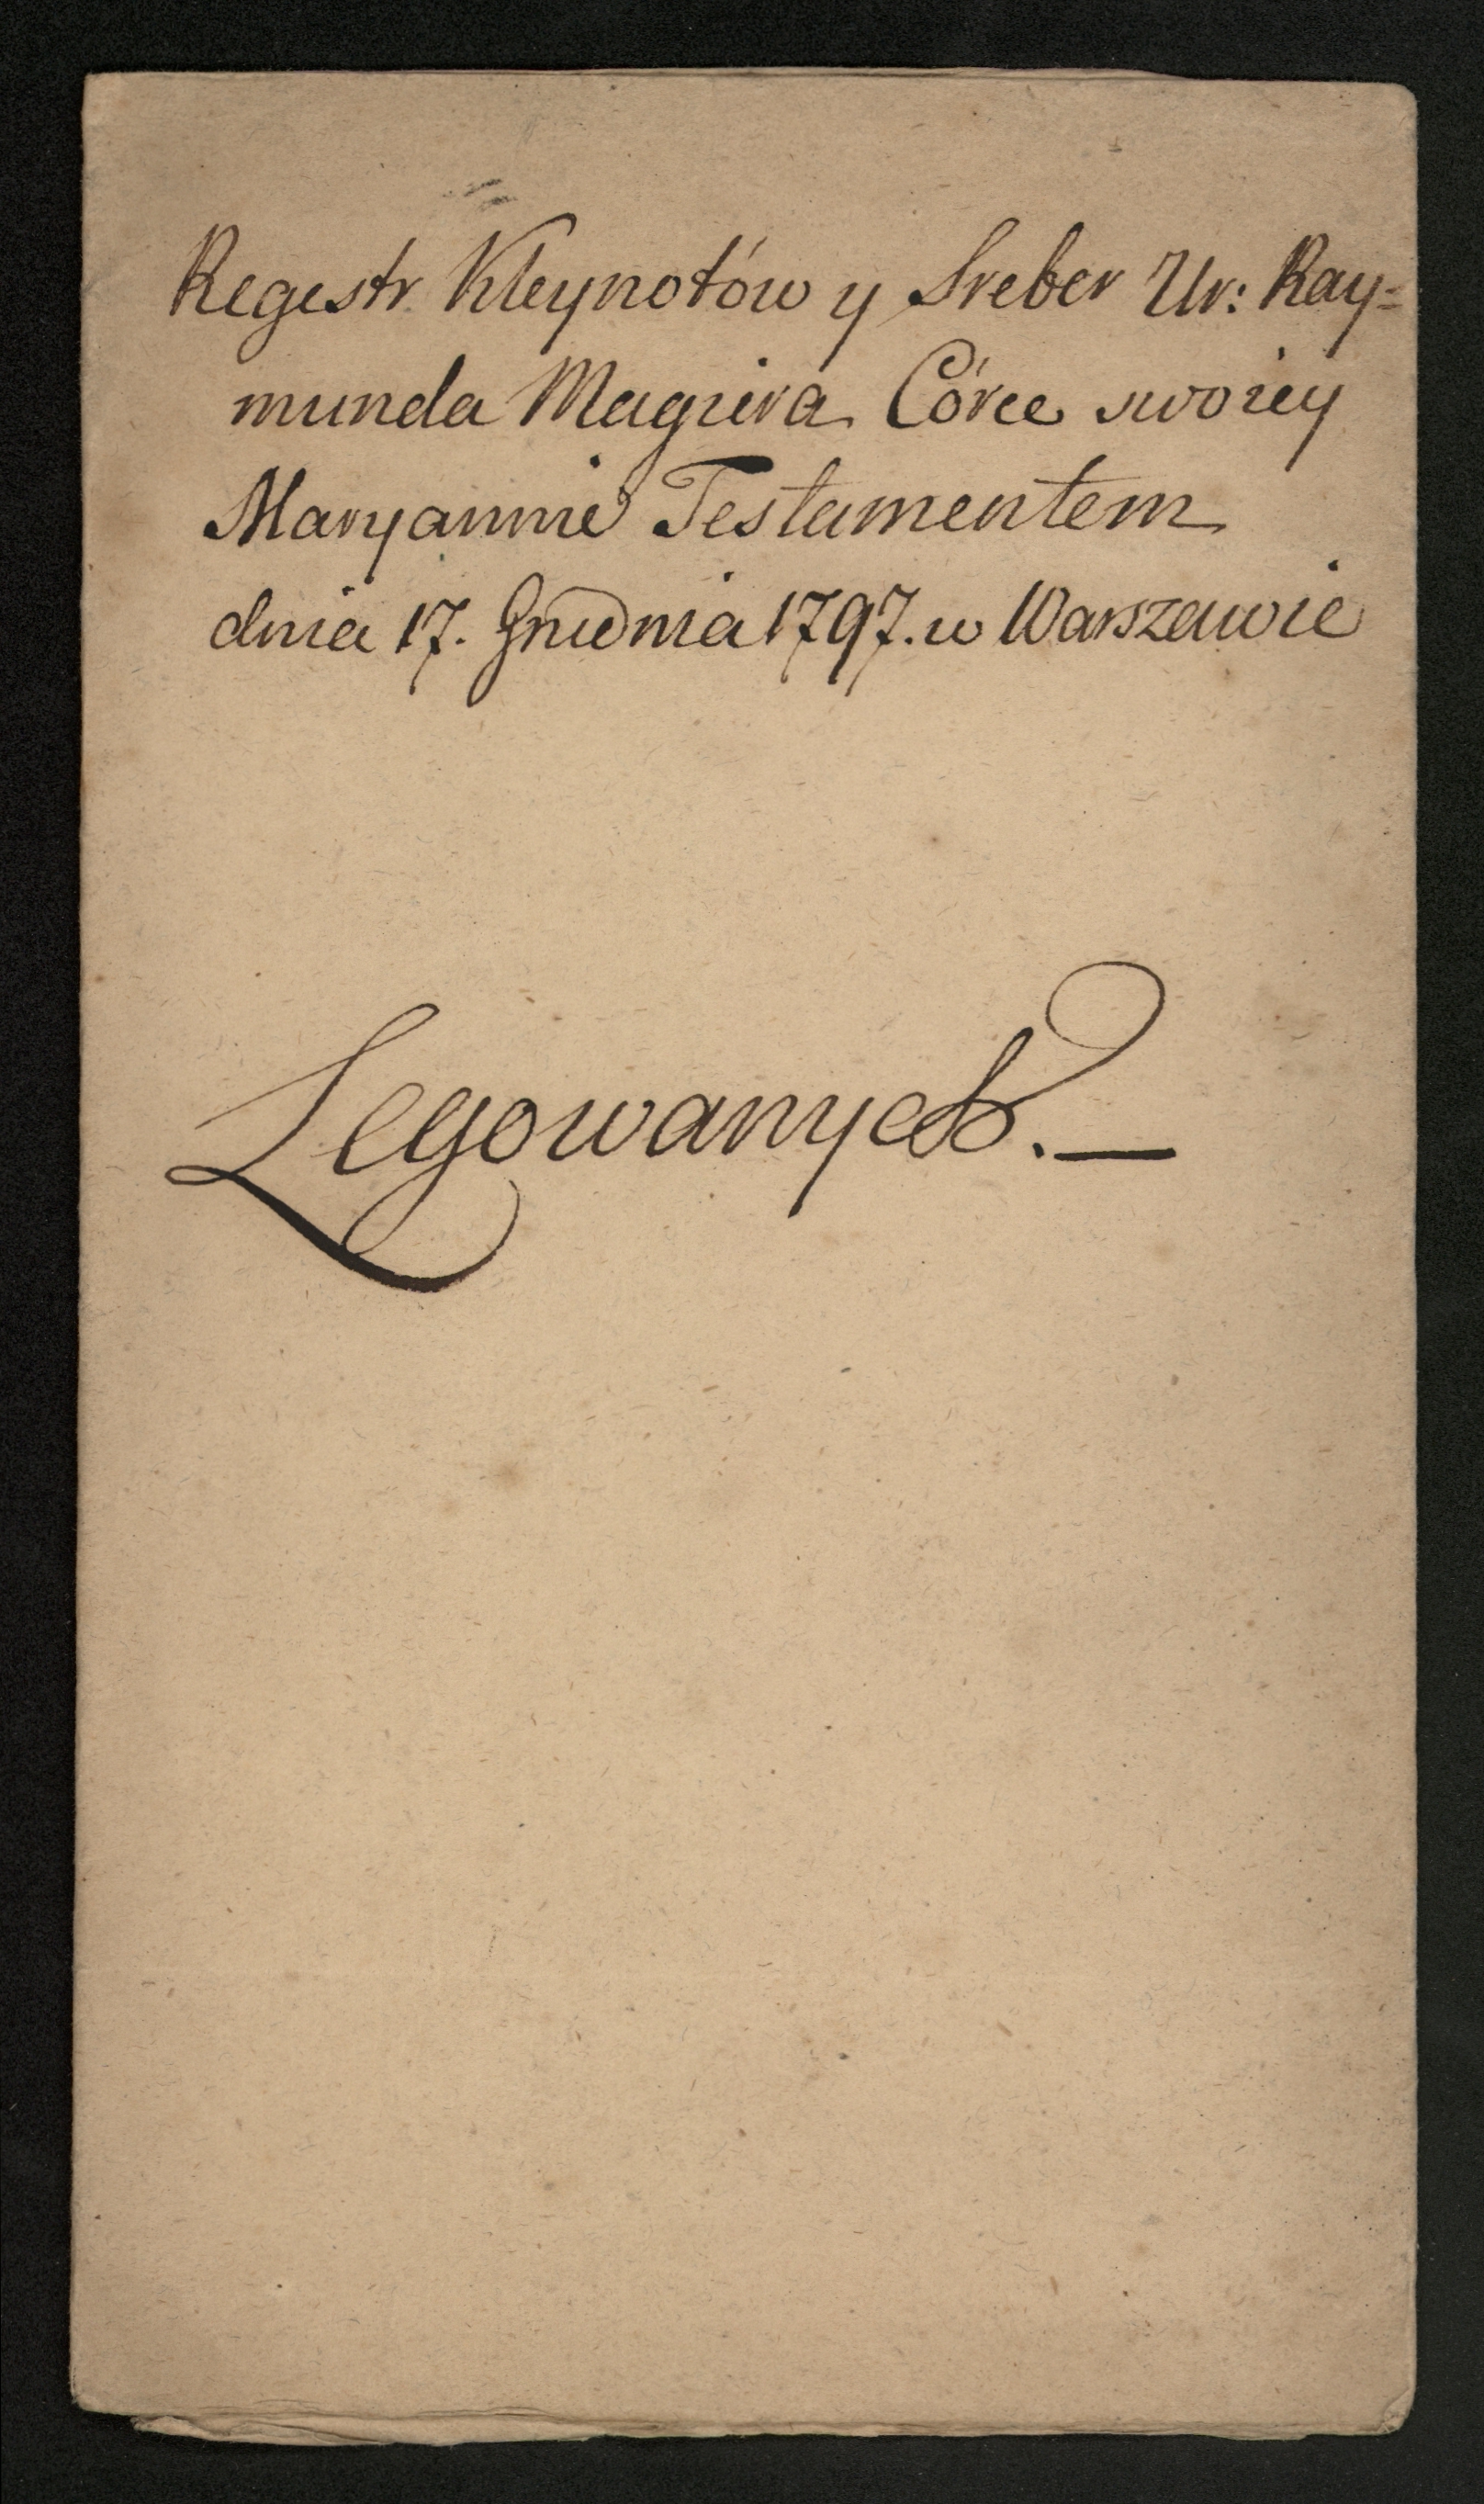 Regestr Kleynotów y Sreber Ur: Ray=
munda Magiera Córce swoiey
Maryannie Testamentem
dnia 17. Grudnia 1797. w Warszawie
Legowanych. —